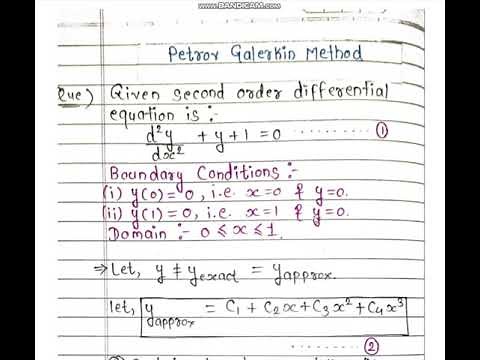 www.BANDICAM.com
Petrov Galerkin Method
Que) Given second order differential
equation is :-
d²y/dx² + y + 1 = 0 ........ ①
Boundary Conditions :-
(i) y(0) = 0, i.e. x=0 & y=0.
(ii) y(1) = 0, i.e. x=1 & y=0.
Domain :- 0 ≤ x ≤ 1.
⇒ Let, y ≠ y_exact = y_approx.
let, y_approx = C₁ + C₂x + C₃x² + C₄x³
........ ②